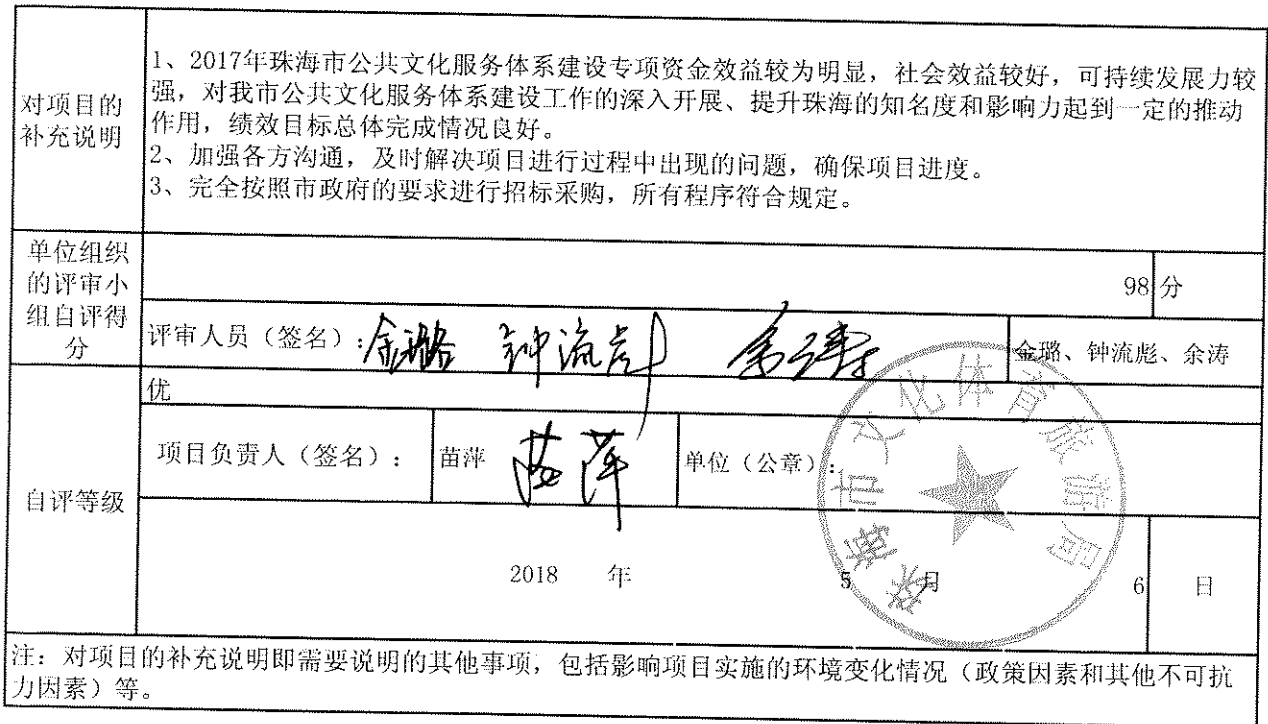 对项目的
补充说明
1、2017年珠海市公共文化服务体系建设专项资金效益较为明显，社会效益较好，可持续发展力较
强，对我市公共文化服务体系建设工作的深入开展、提升珠海的知名度和影响力起到一定的推动
作用，绩效目标总体完成情况良好。
2、加强各方沟通，及时解决项目进行过程中出现的问题，确保项目进度。
3、完全按照市政府的要求进行招标采购，所有程序符合规定。
单位组织
的评审小
组自评得
分
98 分
评审人员（签名）：金璐 钟流彪 余涛 金璐、钟流彪、余涛
自评等级
优
项目负责人（签名）： 苗萍 苗萍 单位（公章）：
珠海市文化体育旅游局
2018 年 5 月 6 日
注：对项目的补充说明即需要说明的其他事项，包括影响项目实施的环境变化情况（政策因素和其他不可抗
力因素）等。